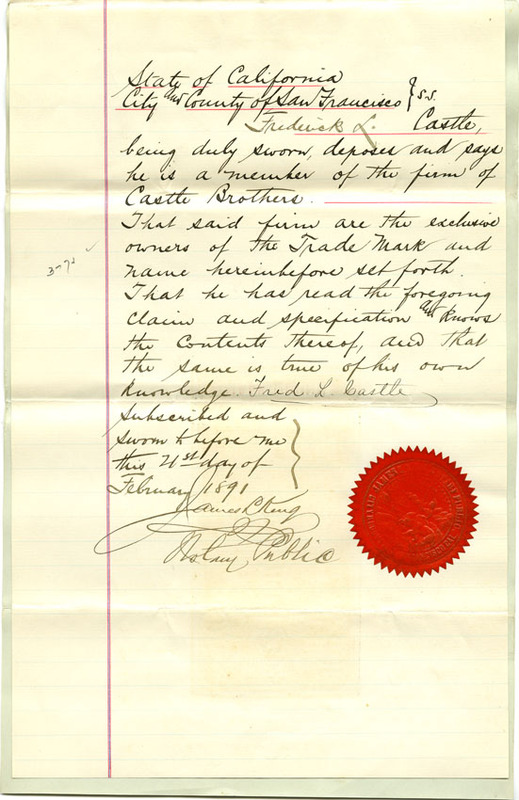 State of California
City and County of San Francisco } S.S.
Frederick L. Castle,
being duly sworn, deposes and says
he is a member of the firm of
Castle Brothers.
That said firm are the exclusive
owners of the Trade Mark and
name hereinbefore set forth.
That he has read the foregoing
claim and specification and knows
the contents thereof, and that
the same is true of his own
knowledge. Fred L. Castle
Subscribed and
sworn to before me
this 21st day of
February 1891
James L. King
Notary Public